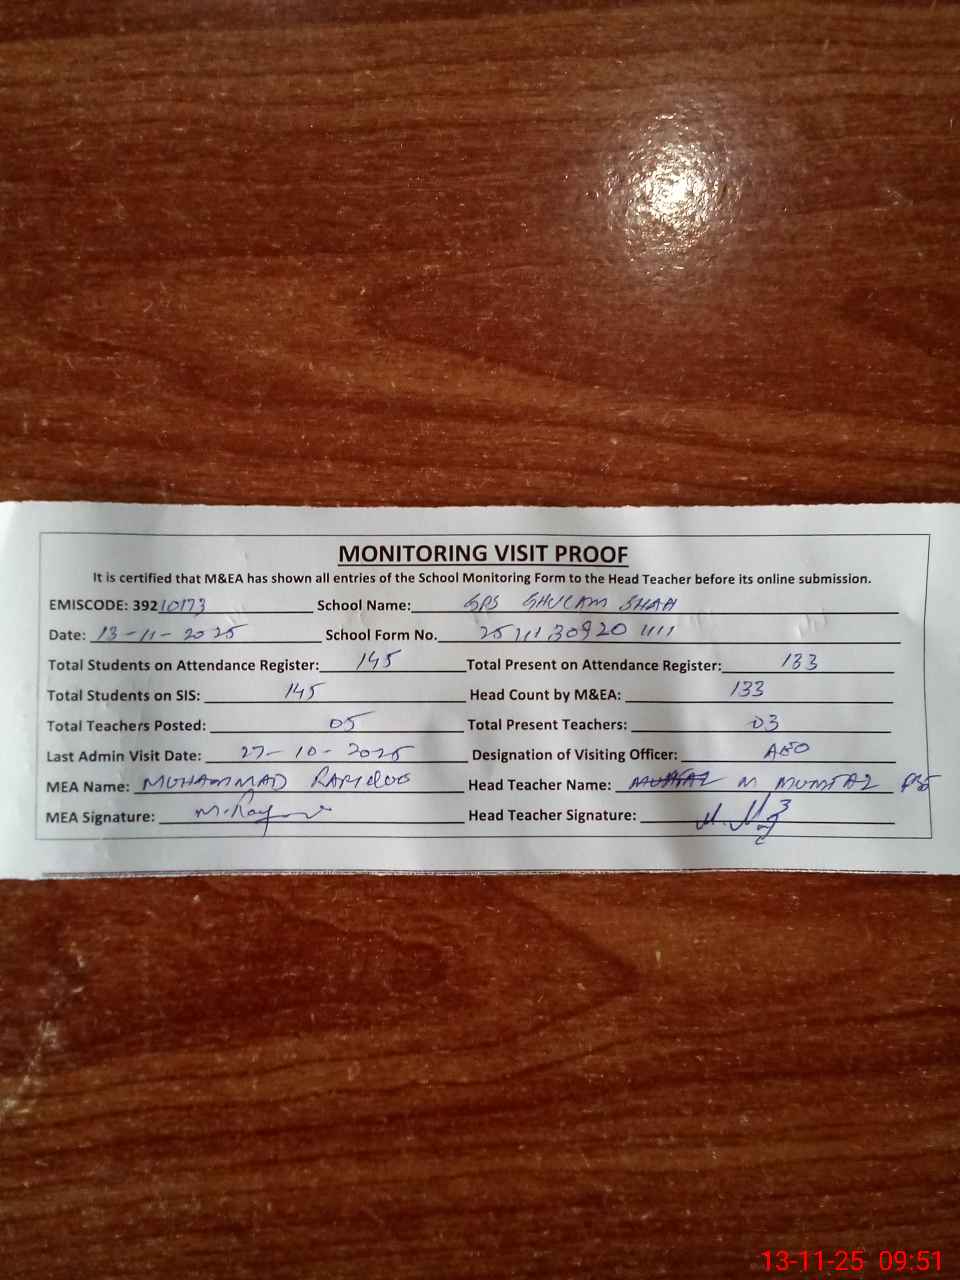 MONITORING VISIT PROOF
It is certified that M&EA has shown all entries of the School Monitoring Form to the Head Teacher before its online submission.
EMISCODE: 39210173 School Name: GPS GHULAM SHAH
Date: 13-11-2025 School Form No. 25111130920 1111
Total Students on Attendance Register: 145 Total Present on Attendance Register: 133
Total Students on SIS: 145 Head Count by M&EA: 133
Total Teachers Posted: 05 Total Present Teachers: 03
Last Admin Visit Date: 27-10-2025 Designation of Visiting Officer: AEO
MEA Name: MUHAMMAD Head Teacher Name: M MUMTAZ
MEA Signature: Head Teacher Signature:
13-11-25 09:51